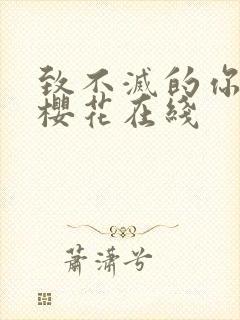 致不滅的你
櫻花在綫
蕭瀟兮